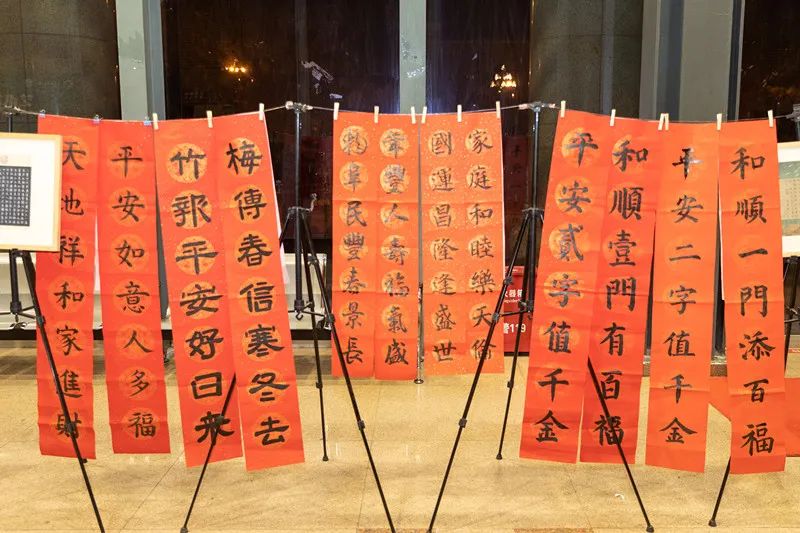 和順一門添百福
平安二字值千金
和順壹門有百福
平安貳字值千金
家庭和睦樂天倫
國運昌隆逢盛世
豐人壽福氣盛
阜民豐春景長
梅傳春信寒冬去
竹報平安好日來
平安如意人多福
天地祥和家進財
警119